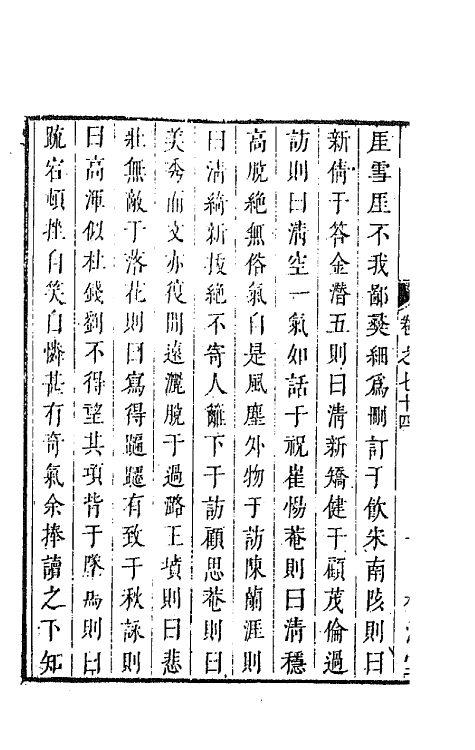 卷之七十四
厓雪厓不我鄙爰細爲刪訂于飲朱南陔則曰
新倩于答金潛五則曰淸新矯健于顧茂倫過
訪則曰淸空一氣如話于祝崔惕菴則曰淸穩
高脫絶無俗氣自是風塵外物于訪陳蘭涯則
曰淸綺新拔絶不寄人籬下于訪顧思菴則曰
美秀而文亦復閒遠灑脫于過路王墳則曰悲
壯無敵于落花則曰寫得躚躚有致于秋詠則
曰高渾似杜錢劉不得望其項背于墜馬則曰
疏宕頓挫自笑自憐甚有奇氣余捧讀之下知